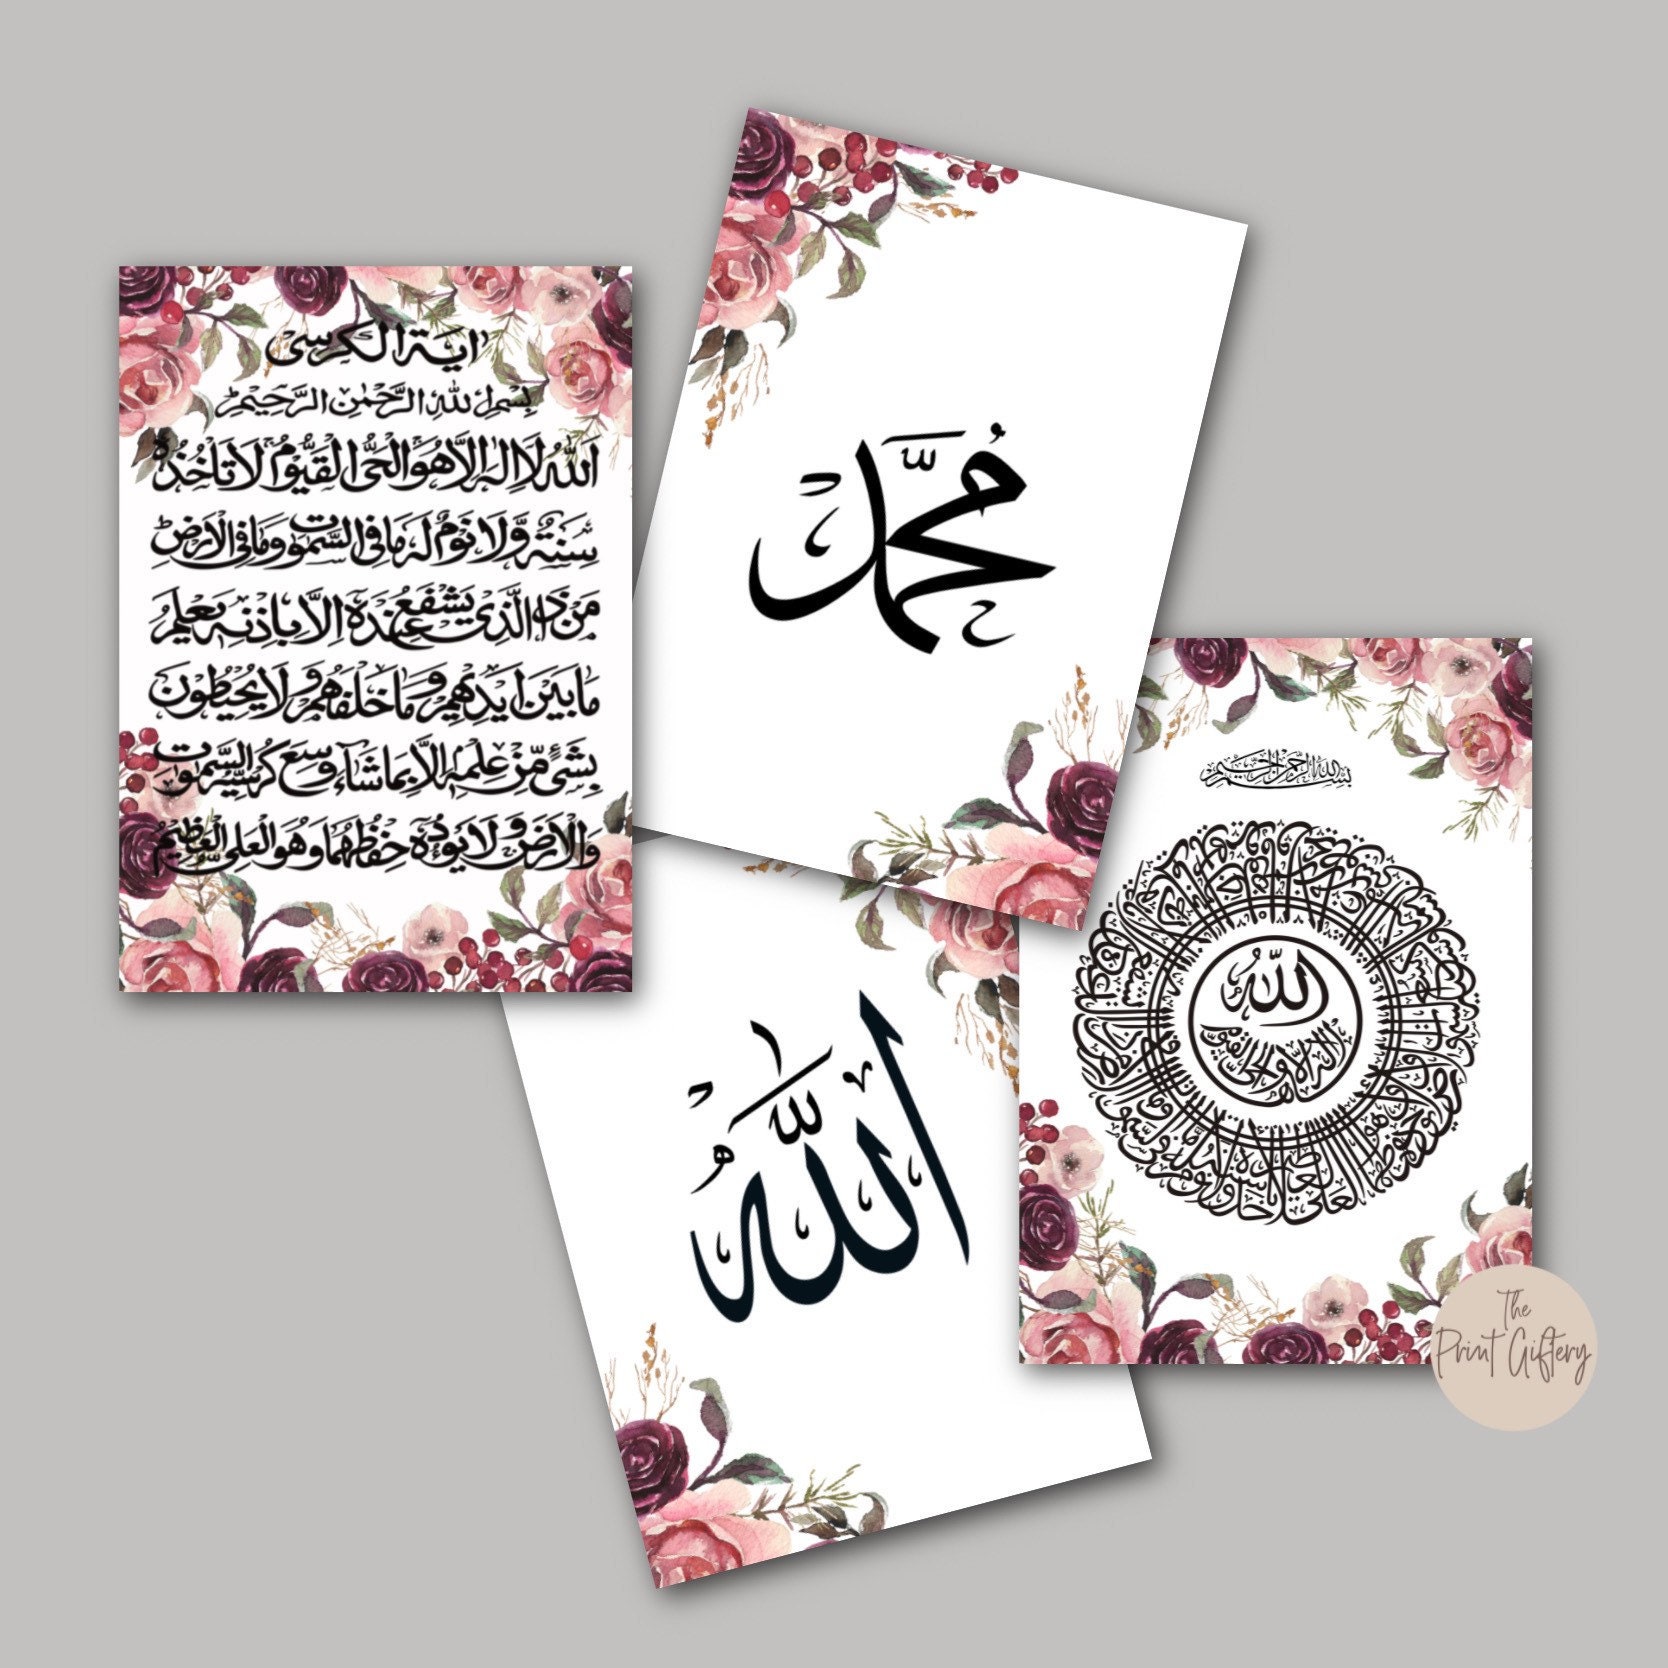 اية الكرسى
بِسْمِ اللهِ الرَّحْمٰنِ الرَّحِيْمِ
اَللّٰهُ لَا اِلٰهَ اِلَّا هُوَ الْحَىُّ الْقَيُّوْمُ لَا تَاْخُذُهٗ
سِنَةٌ وَّلَا نَوْمٌ لَهٗ مَا فِى السَّمٰوٰتِ وَمَا فِى الْاَرْضِ
مَنْ ذَا الَّذِىْ يَشْفَعُ عِنْدَهٗ اِلَّا بِاِذْنِهٖ يَعْلَمُ
مَا بَيْنَ اَيْدِيْهِمْ وَمَا خَلْفَهُمْ وَلَا يُحِيْطُوْنَ
بِشَىْءٍ مِّنْ عِلْمِهٖ اِلَّا بِمَا شَاءَ وَسِعَ كُرْسِيُّهُ السَّمٰوٰتِ
وَالْاَرْضَ وَلَا يَؤُدُهٗ حِفْظُهُمَا وَهُوَ الْعَلِىُّ الْعَظِيْمُ
مُحَمَّدٌ
اَللّٰهُ
بسم الله الرحمن الرحيم
الله
لا إله إلا هو الحي القيوم
The
Print Giftery